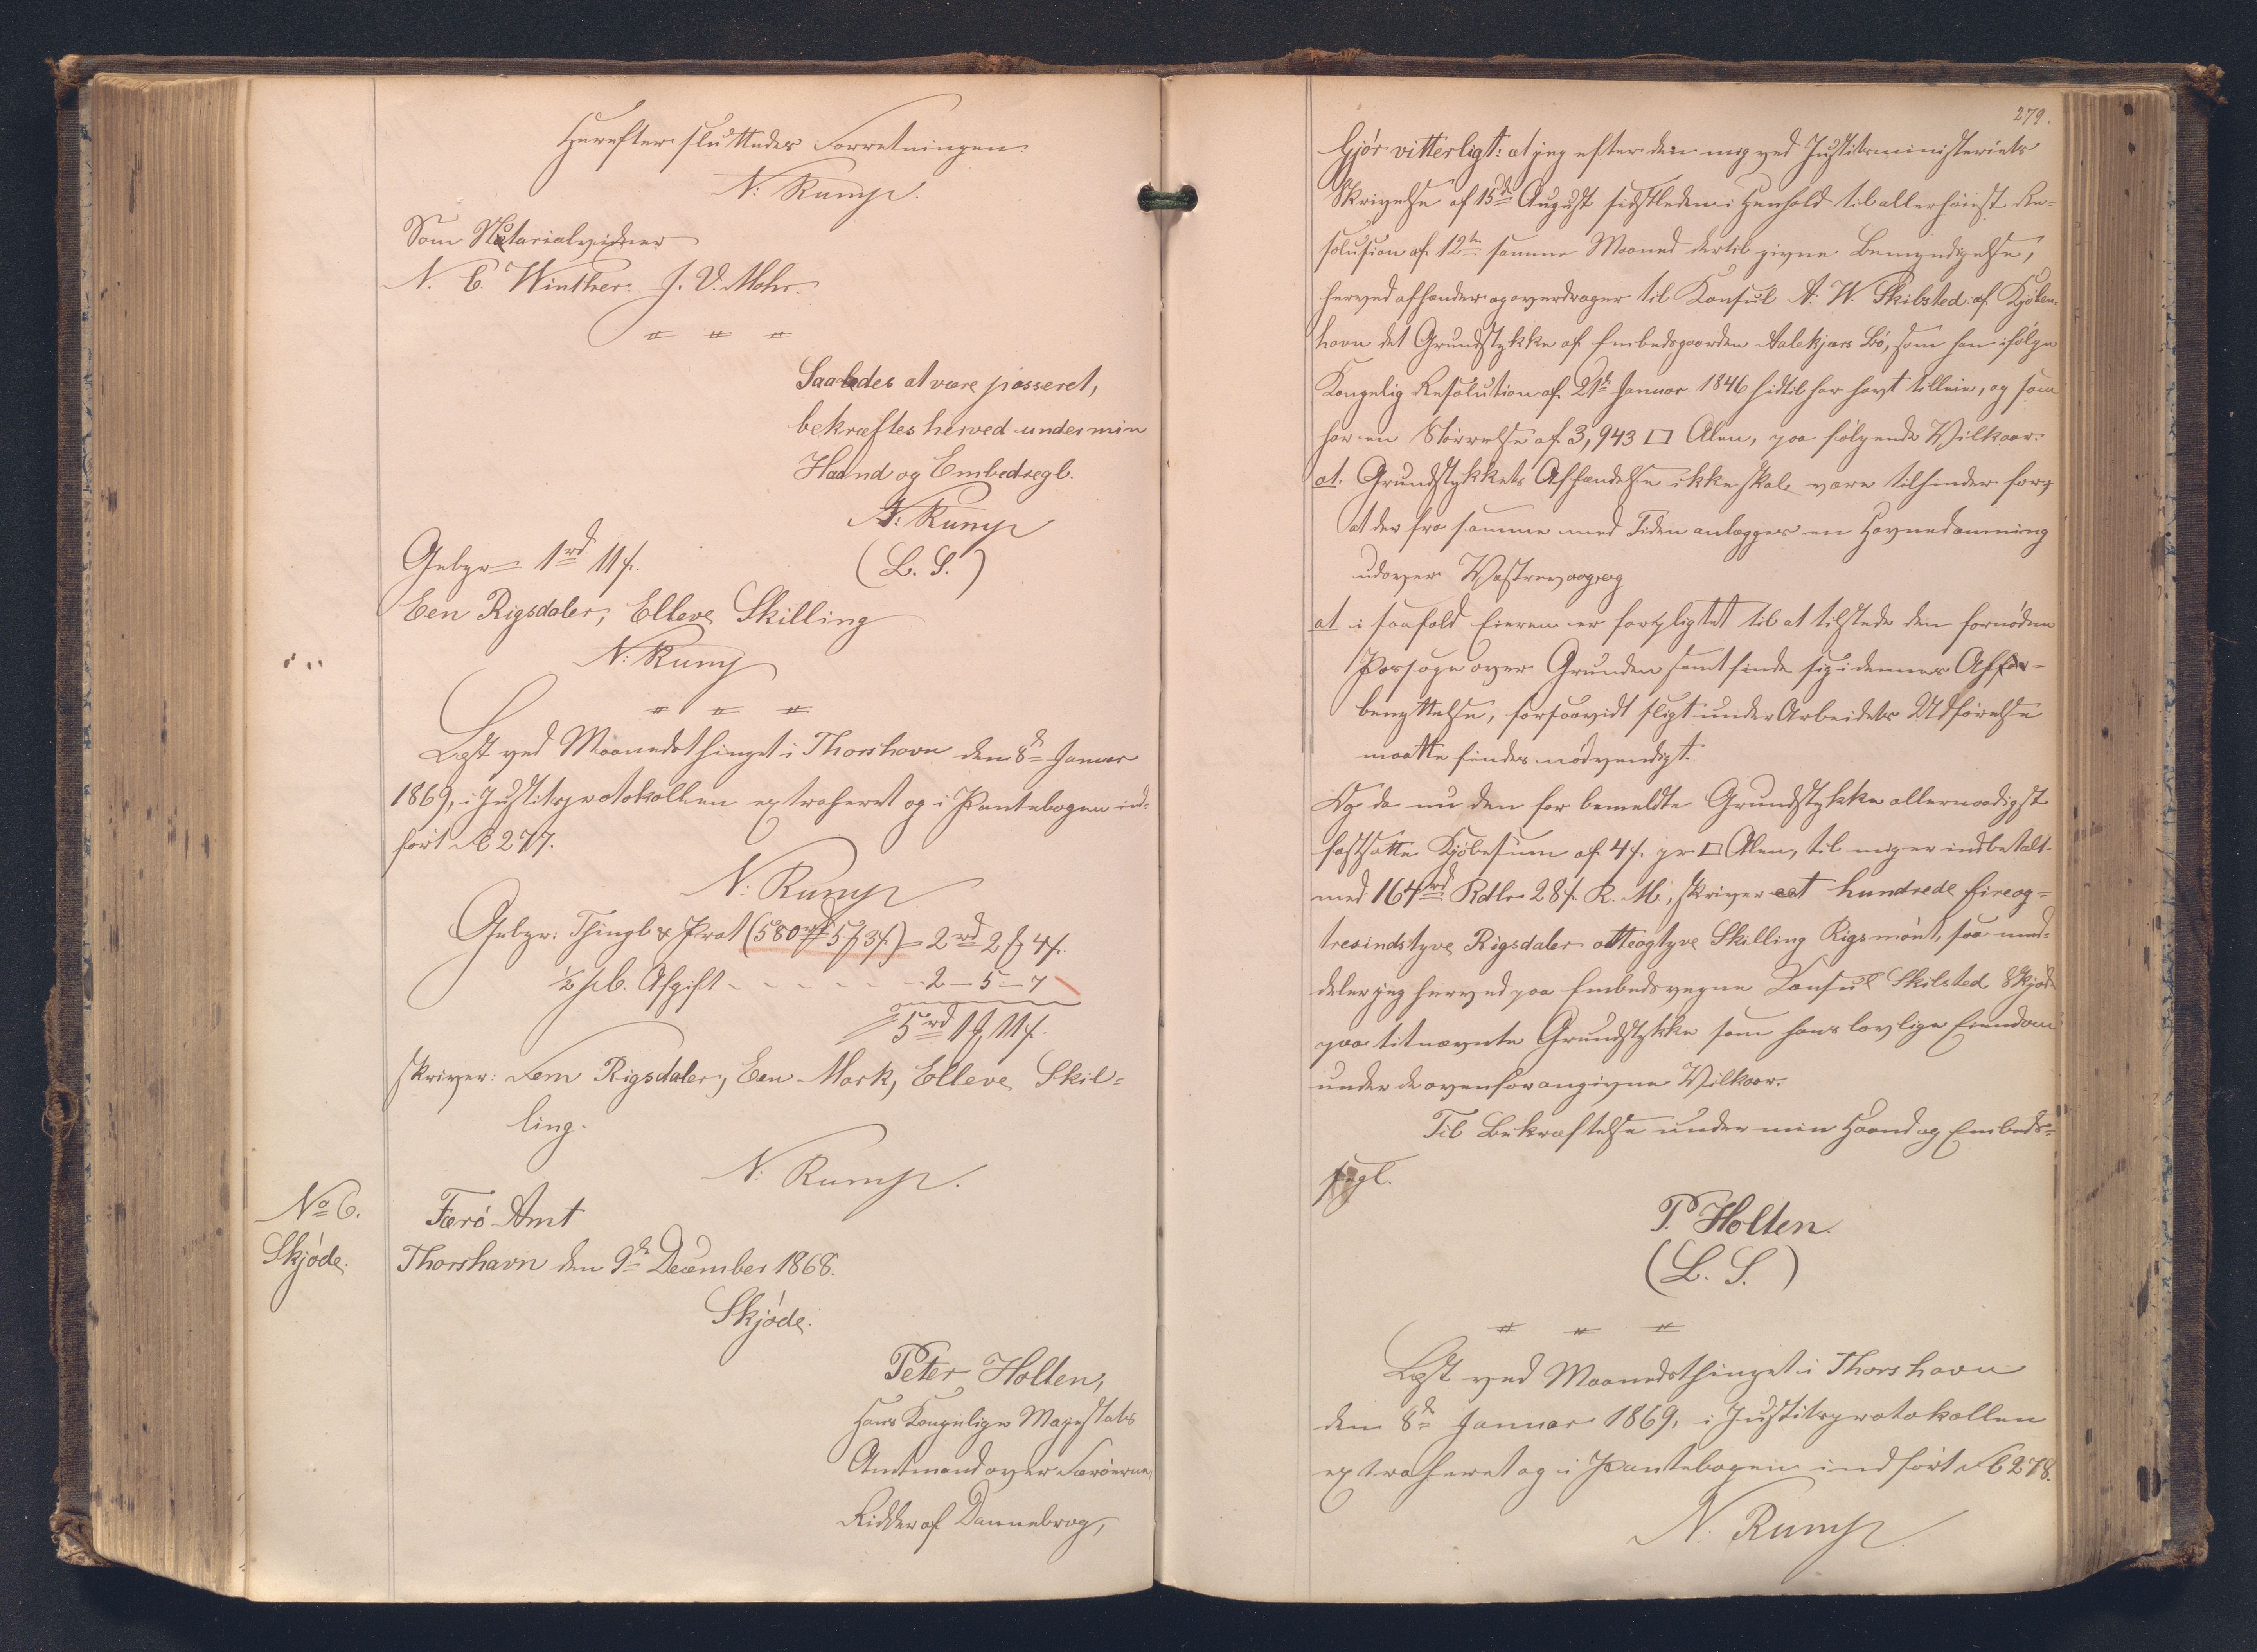 Herefter sluttedes Forretningen.
N: Rump.
Som Notarialvidner
N. C. Winther. J. V. Mohr.
Saaledes at være passeret,
bekræftes herved under min
Haand og Embedsegl.
N: Rump
Gebyr 1 rd 11 s.
(L. S.)
Een Rigsdaler, Elleve Skilling
N: Rump
Læst ved Maanedsthinget i Thorshavn den 8de Januar
1869, i Justitsprotokollen extraheret og i Pantebogen ind-
ført Fol 277.
N: Rump
Gebyr: Thingl & Prot (580 rd 5 mk 3 s.) = 2 rd 2 mk 4 s.
½ pCt. Afgift - - - - - - 2 - 5 - 7
5 rd 1 mk 11 s.
skriver: Fem Rigsdaler, Een Mark, Elleve Skil=
ling.
N: Rump.
No 6.
Skjøde.
Færø Amt
Thorshavn den 9de December 1868.
Skjøde.
Peter Holten,
Hans Kongelige Majestæts
Amtmand over Færøerne,
Ridder af Dannebrog,
279.
Gjør vitterligt: at jeg efter den mig ved Justitsministeriets
Skrivelse af 15de August sidstleden i Henhold til allerhøiest Re-
solusion af 12te samme Maaned dertil givne Bemyndigelse,
herved afhænder og overdrager til Konsul A. W. Skibsted af Kjøben-
havn det Grundstykke af Embedsgaarden Aalekjærs Bø, som han ifølge
Kongelig Resolution af 21de Januar 1846 hidtil har havt tilleie, og som
har en Størrelse af 3,943 □ Alen, paa følgende Vilkaar:
at. Grundstykkets Afhændelse ikke skal være tilhinder for,
at der fra samme med Tiden anlægges en Havnedæmning
udover Vestrevaag, og
at i saafald Eieren er forpligtet til at tilstede den fornødne
Passage over Grunden samt finde sig i dennes Af-
benyttelse, forsaavidt sligt under Arbeidets Udførelse
maatte findes nødvendigt.
Og da nu den for bemeldte Grundstykke allernaadigst
fastsatte Kjøbesum af 4 s. pr □ Alen, til mig er indbetalt
med 164 rd Rdlr 28 s. R. M., skriver eet hundrede fireog=
tresindstyve Rigsdaler otteogtyve Skilling Rigsmønt, saa med-
deler jeg herved paa Embedsvegne Konsul Skibsted Skjøde
paa titnævnte Grundstykke som hans lovlige Eiendom
under de ovenfor angivne Vilkaar.
Til Bekræftelse under min Haand og Embeds-
segl.
P. Holten.
(L. S.)
Læst ved Maanedsthinget i Thorshavn
den 8de Januar 1869, i Justitsprotokollen
extraheret og i Pantebogen indført Fol 278.
N. Rump